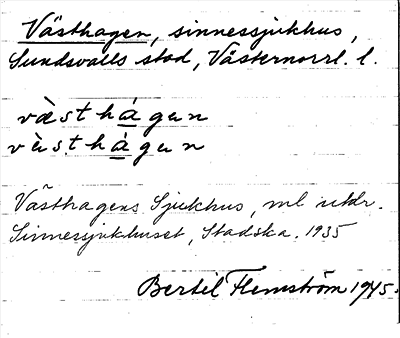 Västhagen, sinnessjukhus,
Sundsvalls stad, Västernorrl. l.
væ̀sthágən
vɛ̀sthágən
Västhagens Sjukhus, ml utdr.
Sinnessjukhuset, Stadska. 1935
Bertil Flemström 1945.